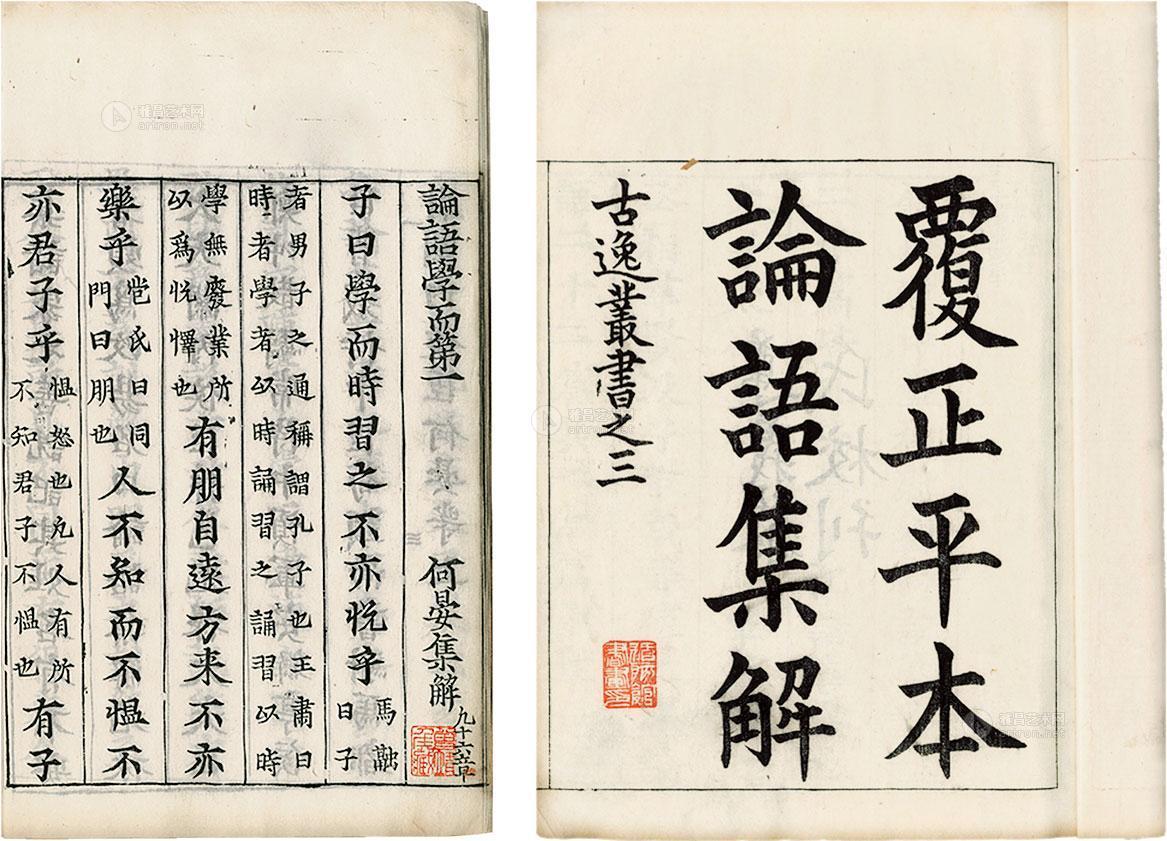 覆正平本
論語集解
古逸叢書之三
論語學而第一 何晏集解 凡十六章
子曰學而時習之不亦悦乎 馬融曰子
者男子之通稱謂孔子也王肅曰
時者學者以時誦習之誦習以時
學無廢業所以爲悦懌也 有朋自遠方来不亦
樂乎 苞氏曰同門曰朋也 人不知而不愠不
亦君子乎 愠怒也凡人有所不知君子不愠也 有子
雅昌艺术网
artron.net
雅昌艺术网
artron.net
雅昌艺术网
artron.net